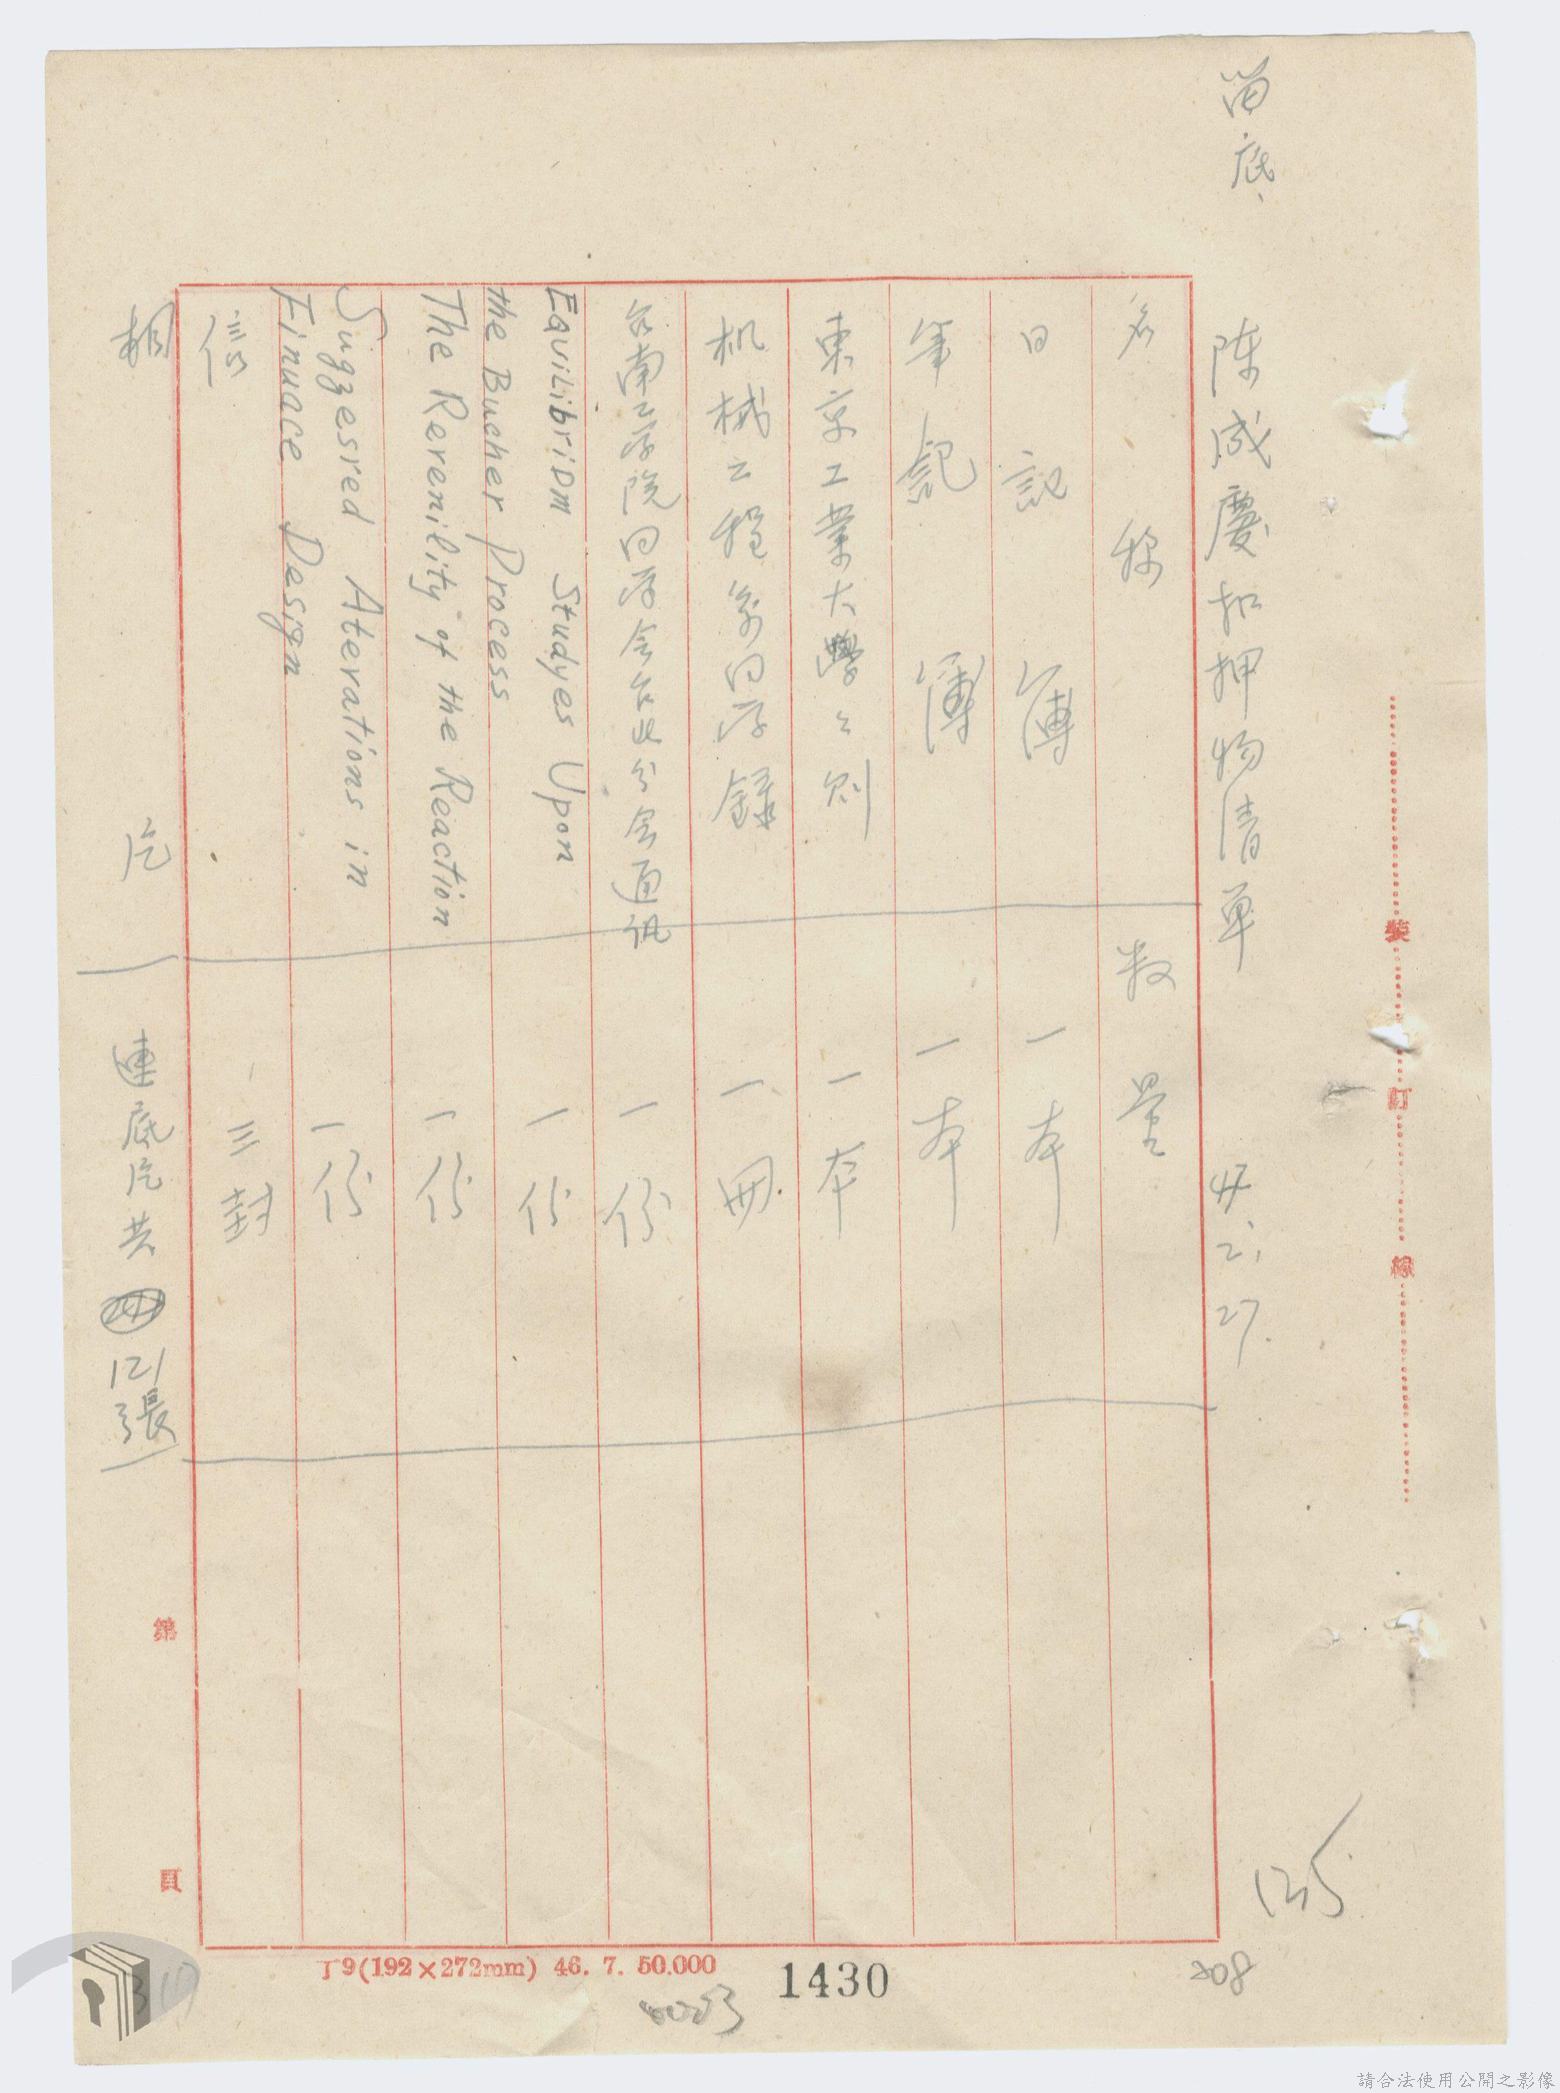 留底
陈成慶扣押物清单 47.2.27.
名称 数量
日記簿 一本
筆記簿 一本
東京工業大學々則 一本
机械工程系同学録 一册
台南工学院同学会台北分会通訊 一份
EquilibriDm Studyes Upon
the Bucher Process 一份
The Rerenility of the Reaction 一份
Suggesred Aterations in
Finuace Design 一份
信 三封
相片 連底片共 121張
裝訂線
第 頁
125
208
丁9(192×272mm) 46. 7. 50.000
1430
請合法使用公開之影像